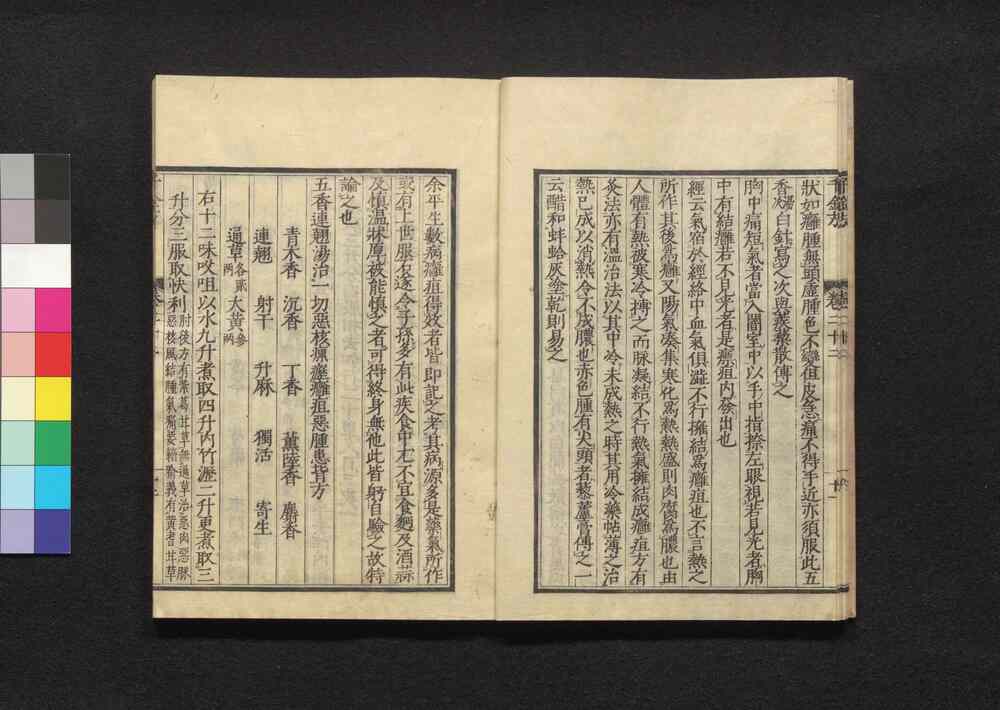 狀如癰腫無頭虛腫色不變但皮急痛不得手近亦須服此五
香湯次白針寫之次與蒺蔾散傅之
胸中痛短氣者當入闇室中以手中指捺左眼視若見光者胸
中有結癰若不見光者是瘭疽內發出也
經云氣宿於經絡中血氣俱澁不行擁結爲癰疽也不言熱之
所作其後爲癰又陽氣湊集寒化爲熱熱盛則肉腐爲膿也由
人體有熱被寒冷搏之而脉凝結不行熱氣擁結成癰疽方有
灸法亦有溫治法以其中冷未成熱之時其用冷藥帖薄之治
熱已成以消熱令不成膿也赤色腫有尖頭者藜蘆膏傅之一
云醋和蚌蛤灰塗乾則易之
余平生數病癰疽得效者皆即記之考其病源多是藥氣所作
或有上世服石遂令子孫多有此疾食中尤不宜食麵及酒蒜
及慎溫牀厚被能慎之者可得終身無他此皆躬自驗之故特
論之也
五香連翹湯治一切惡核瘰癧癰疽惡腫患皆方
青木香 沉香 丁香 薰陸香 麝香
連翹 射干 升麻 獨活 寄生
通草各貳兩 大黃參兩
右十二味㕮咀以水九升煮取四升內竹瀝二升更煮取三
升分三服取快利